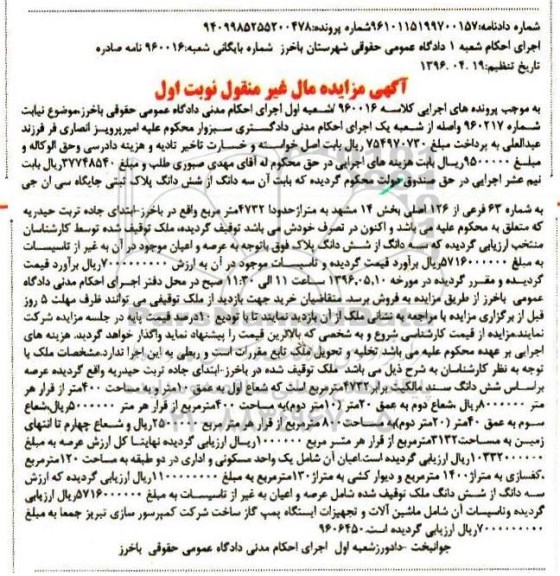 شماره دادنامه:۹۶۱۰۱۱۵۱۹۹۷۰۰۱۵۷شماره پرونده:۹۴۰۹۹۸۵۲۵۵۲۰۰۴۷۸
اجرای احکام شعبه ۱ دادگاه عمومی حقوقی شهرستان باخرز شماره بایگانی شعبه:۹۶۰۰۱۶ نامه صادره
تاریخ تنظیم:۱۳۹۶.۰۴.۱۹
آگهی مزایده مال غیر منقول نوبت اول
به موجب پرونده های اجرایی کلاسه ۹۶۰۰۱۶ /شعبه اول اجرای احکام مدنی دادگاه عمومی حقوقی باخرز،موضوع نیابت
شماره ۹۶۰۲۱۷ واصله از شعبه یک اجرای احکام مدنی دادگستری سبزوار محکوم علیه امیرپرویز انصاری فر فرزند
عبدالعلی به پرداخت ۷۵۴۹۷۰۷۳۰ ریال بابت اصل خواسته و خسارت تاخیر تادیه و هزینه دادرسی وحق الوکاله و
مبلغ ۹۵۰۰۰۰۰ریال بابت هزینه های اجرایی در حق محکوم له آقای مهدی صبوری طلب و مبلغ ۳۷۷۴۸۵۴۰ریال بابت
نیم عشر اجرایی در حق صندوق دولت محکوم گردیده که بابت آن سه دانگ از شش دانگ پلاک ثبتی جایگاه سی ان جی
به شماره ۶۳ فرعی از ۱۲۶اصلی بخش ۱۴ مشهد به متراژحدودا ۴۷۳۲متر مربع واقع در باخرز-ابتدای جاده تربت حیدریه
که متعلق به محکوم علیه می باشد و اکنون در تصرف خودش می باشد توقیف گردیده، ملک توقیف شده توسط کارشناسان
منتخب ارزیابی گردیده که سه دانگ از شش دانگ پلاک فوق باتوجه به عرصه و اعیان موجود در آن به غیر از تاسیسات
به مبلغ ۵۷۱۶۰۰۰۰۰۰ریال برآورد قیمت گردیده و تاسیسات موجود در آن به ارزش ۷۰۰۰۰۰۰۰۰۰ریال برآورد قیمت
گردیده و مقرر گردیده در مورخه ۱۳۹۶.۰۵.۱۰ ساعت ۱۱ الی ۱۱:۳۰ صبح در محل دفتر اجرای احکام مدنی دادگاه
عمومی باخرز از طریق مزایده به فروش برسد. متقاضیان خرید جهت بازدید از ملک توقیفی می توانند ظرف مهلت ۵ روز
قبل از برگزاری مزایده با مراجعه به نشانی ملک از آن بازدید نمایند تا با تودیع ۱۰درصد قیمت پایه در جلسه مزایده شرکت
نمایند.مزایده از قیمت کارشناسی شروع و به شخصی که بالاترین قیمت را پیشنهاد نماید واگذار خواهد گردید. هزینه های
اجرایی بر عهده محکوم علیه می باشد تخلیه و تحویل ملک تابع مقررات است و ربطی به این اجرا ندارد.مشخصات ملک با
توجه به نظر کارشناسان به شرح ذیل می باشد. ملک توقیف شده در باخرز-ابتدای جاده تربت حیدریه واقع گردیده عرصه
براساس شش دانگ سند مالکیت برابر۴۷۳۲مترمربع است که شعاع اول به عمق ۱۰متر و به مساحت ۴۰۰متر از قرار هر
متر ۸۰۰۰۰۰۰ریال ،شعاع دوم به عمق ۲۰متر(۱۰متر دوم)به مساحت ۴۰۰مترمربع از قرار هر متر ۵۰۰۰۰۰۰ریال،شعاع
سوم به عمق ۴۰متر (۲۰متر دوم)به مساحت ۸۰۰ مترمربع از قرار هر متر مربع ۲۵۰۰۰۰۰ریال و شعاع چهارم تا انتهای
زمین به مساحت۳۱۳۲مترمربع از قرار هر متر مربع ۱۰۰۰۰۰۰ریال ارزیابی گردیده نهایتا کل ارزش عرصه به مبلغ
۱۰۳۳۲۰۰۰۰۰۰ریال ارزیابی گردیده است.اعیان آن شامل یک واحد مسکونی و اداری در دو طبقه به مساحت ۱۲۰مترمربع
،کفسازی به متراژ۱۴۰۰ مترمربع و دیوار کشی به متراژ۱۳۰مترمربع به مبلغ ۱۱۰۰۰۰۰۰۰۰ریال ارزیابی گردیده که ارزش
سه دانگ از شش دانگ ملک توقیف شده شامل عرصه و اعیان به غیر از تاسیسات به مبلغ ۵۷۱۶۰۰۰۰۰۰ریال ارزیابی
گردیده وتاسیسات آن شامل ماشین آلات و تجهیزات ایستگاه پمپ گاز ساخت شرکت کمپرسور سازی تبریز جمعا به مبلغ
۷۰۰۰۰۰۰۰۰۰ریال ارزیابی گردیده است.۹۶۰۶۴۵۰
جوانبخت -دادورزشعبه اول اجرای احکام مدنی دادگاه عمومی حقوقی باخرز